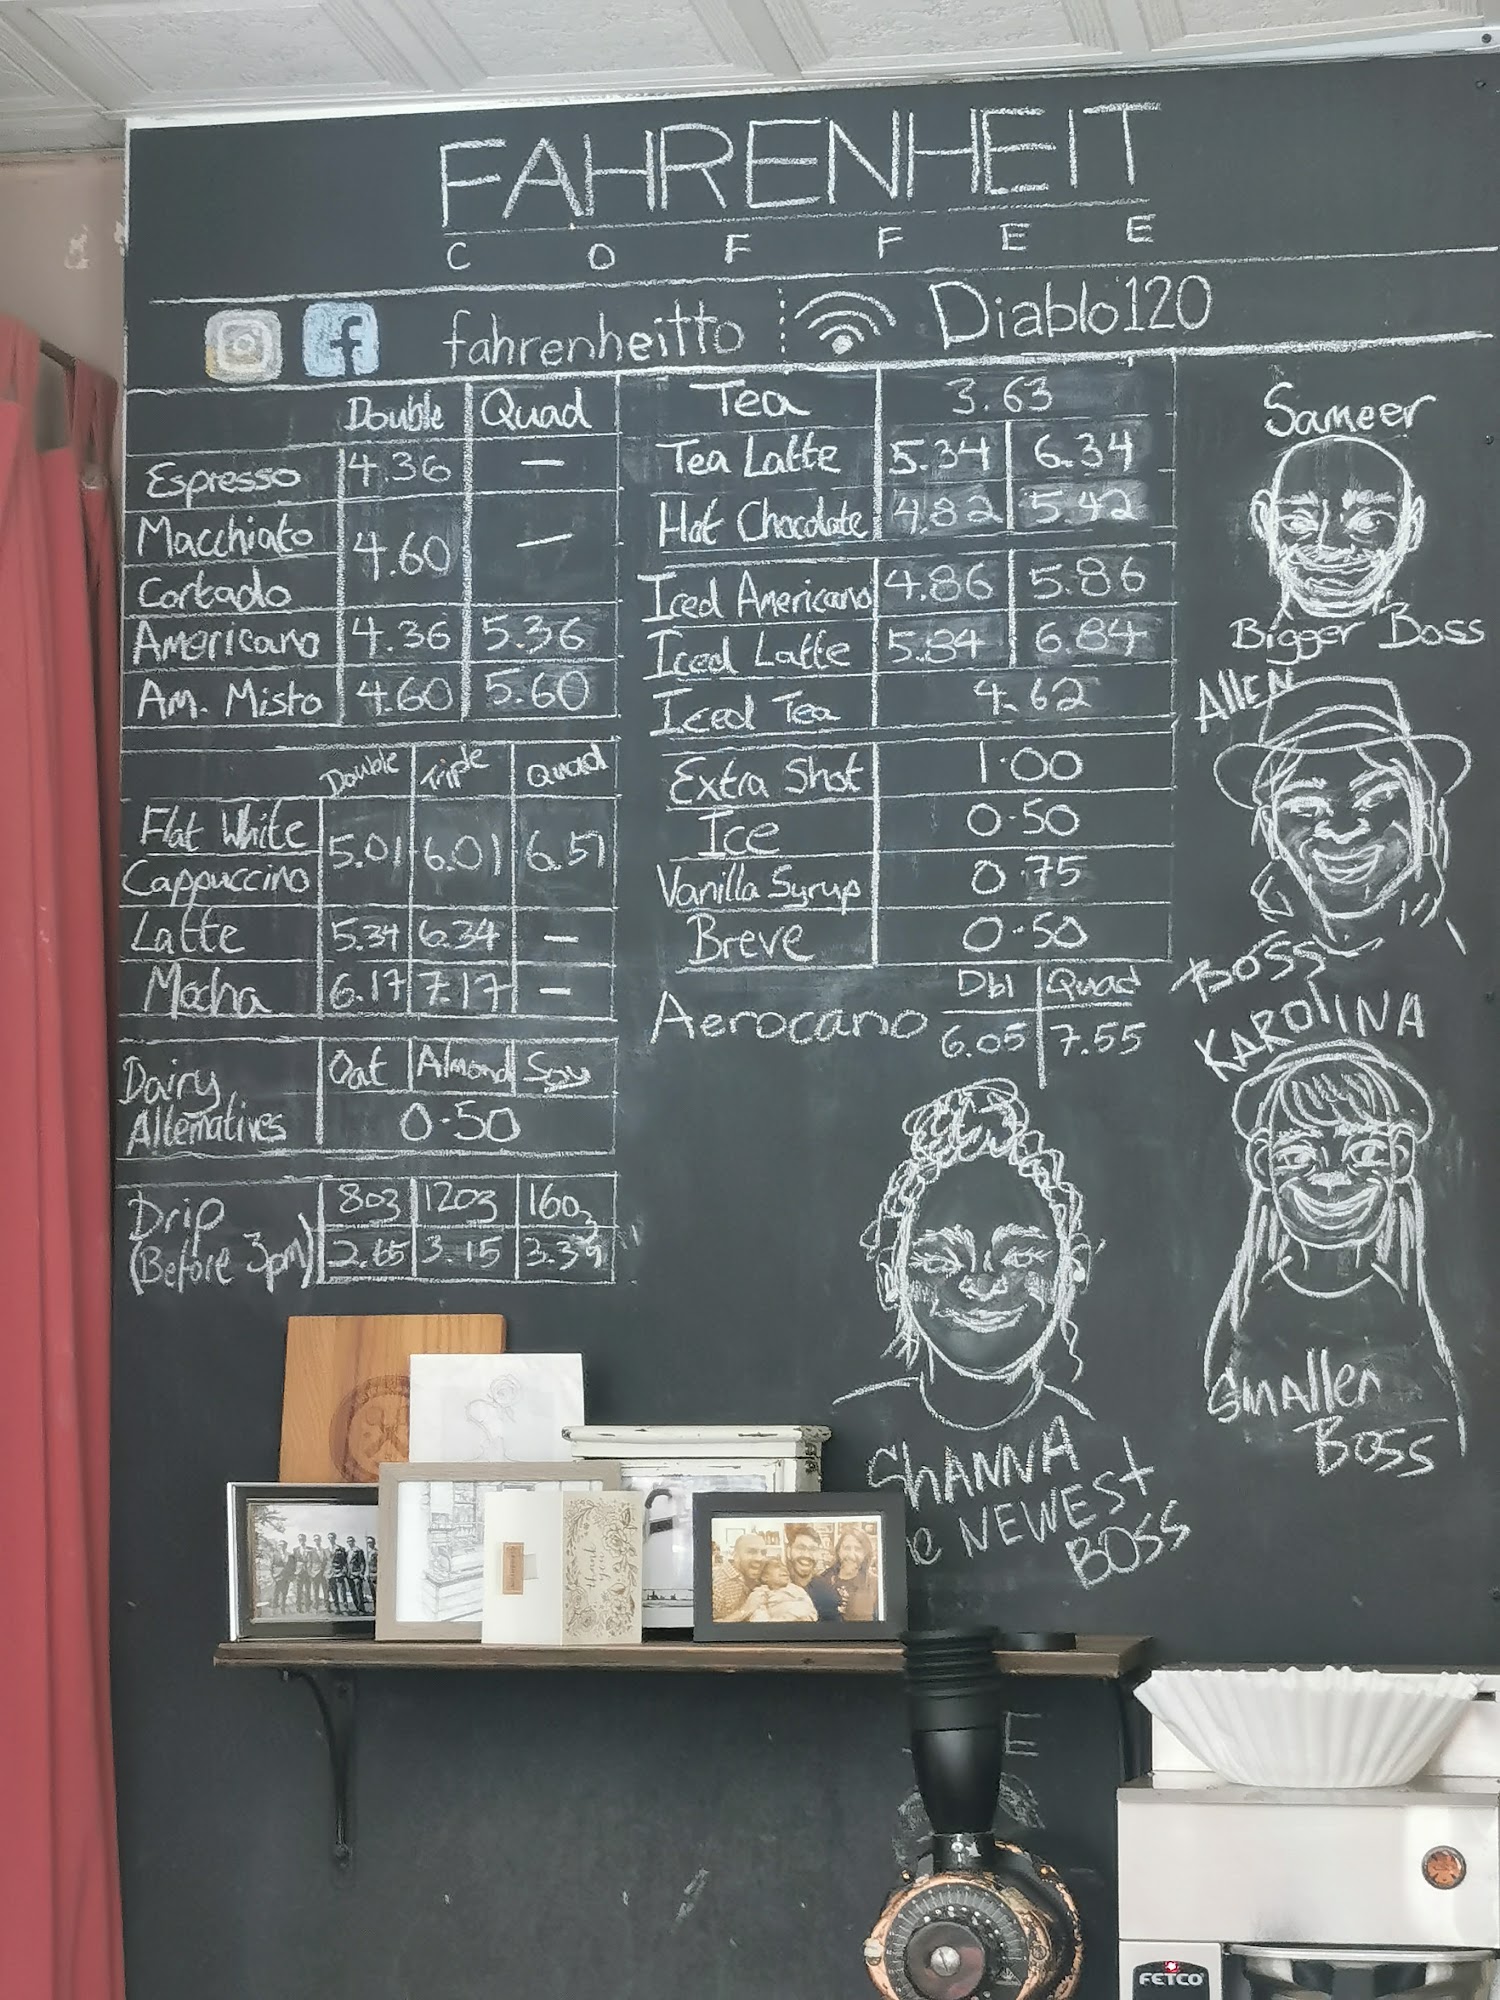 FAHRENHEIT
COFFEE
fahrenheitto Diablo120
Double Quad
Espresso 4.36 —
Macchiato
4.60 —
Cortado
Americano 4.36 5.36
Am. Misto 4.60 5.60
Double Triple Quad
Flat White
5.01 6.01 6.51
Cappuccino
Latte 5.34 6.34 —
Mocha 6.17 7.17 —
Dairy Alternatives
Oat Almond Soy
0.50
Drip (Before 3pm)
8oz 12oz 16oz
2.65 3.15 3.39
Tea 3.63
Tea Latte 5.34 6.34
Hot Chocolate 4.82 5.42
Iced Americano 4.86 5.86
Iced Latte 5.84 6.84
Iced Tea 4.62
Extra Shot 1.00
Ice 0.50
Vanilla Syrup 0.75
Breve 0.50
Dbl Quad
Aerocano 6.05 7.55
Sameer
Bigger Boss
ALLEN
BOSS
KAROLINA
SMALLER
BOSS
SHANNA
NEWEST
BOSS
thank you
FETCO